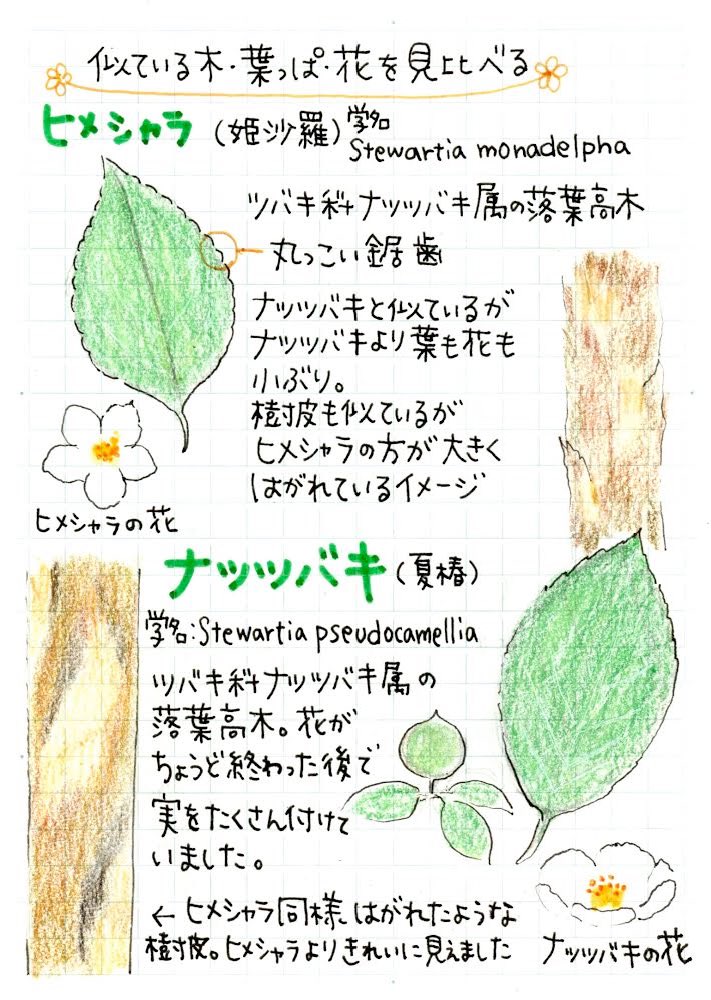 似ている木・葉っぱ・花を見比べる
ヒメシャラ (姫沙羅) 学名
Stewartia monadelpha
ツバキ科ナツツバキ属の落葉高木
丸っこい鋸歯
ナツツバキと似ているが
ナツツバキより葉も花も
小ぶり。
樹皮も似ているが
ヒメシャラの方が大きく
はがれているイメージ
ヒメシャラの花
ナツツバキ (夏椿)
学名:Stewartia pseudocamellia
ツバキ科ナツツバキ属の
落葉高木。花が
ちょうど終わった後で
実をたくさん付けて
いました。
← ヒメシャラ同様、はがれたような
樹皮。ヒメシャラよりきれいに見えました
ナツツバキの花